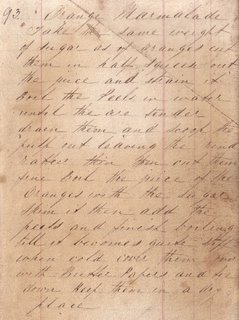 93. Orange Marmalade
Take the same weight
of sugar as of oranges cut
them in half squeese out
the juce and strain it
Boil the Peels in water
until the are tender
drain them and scoop the
pulp out leaving the rind
rather thin then cut them
fine Boil the juice of the
Oranges with the sugar
skim it then add the
peels and finish boiling
till it becomes quite stiff
when cold cover them
with Butter Papers and tie
down Keep them in a dry
place